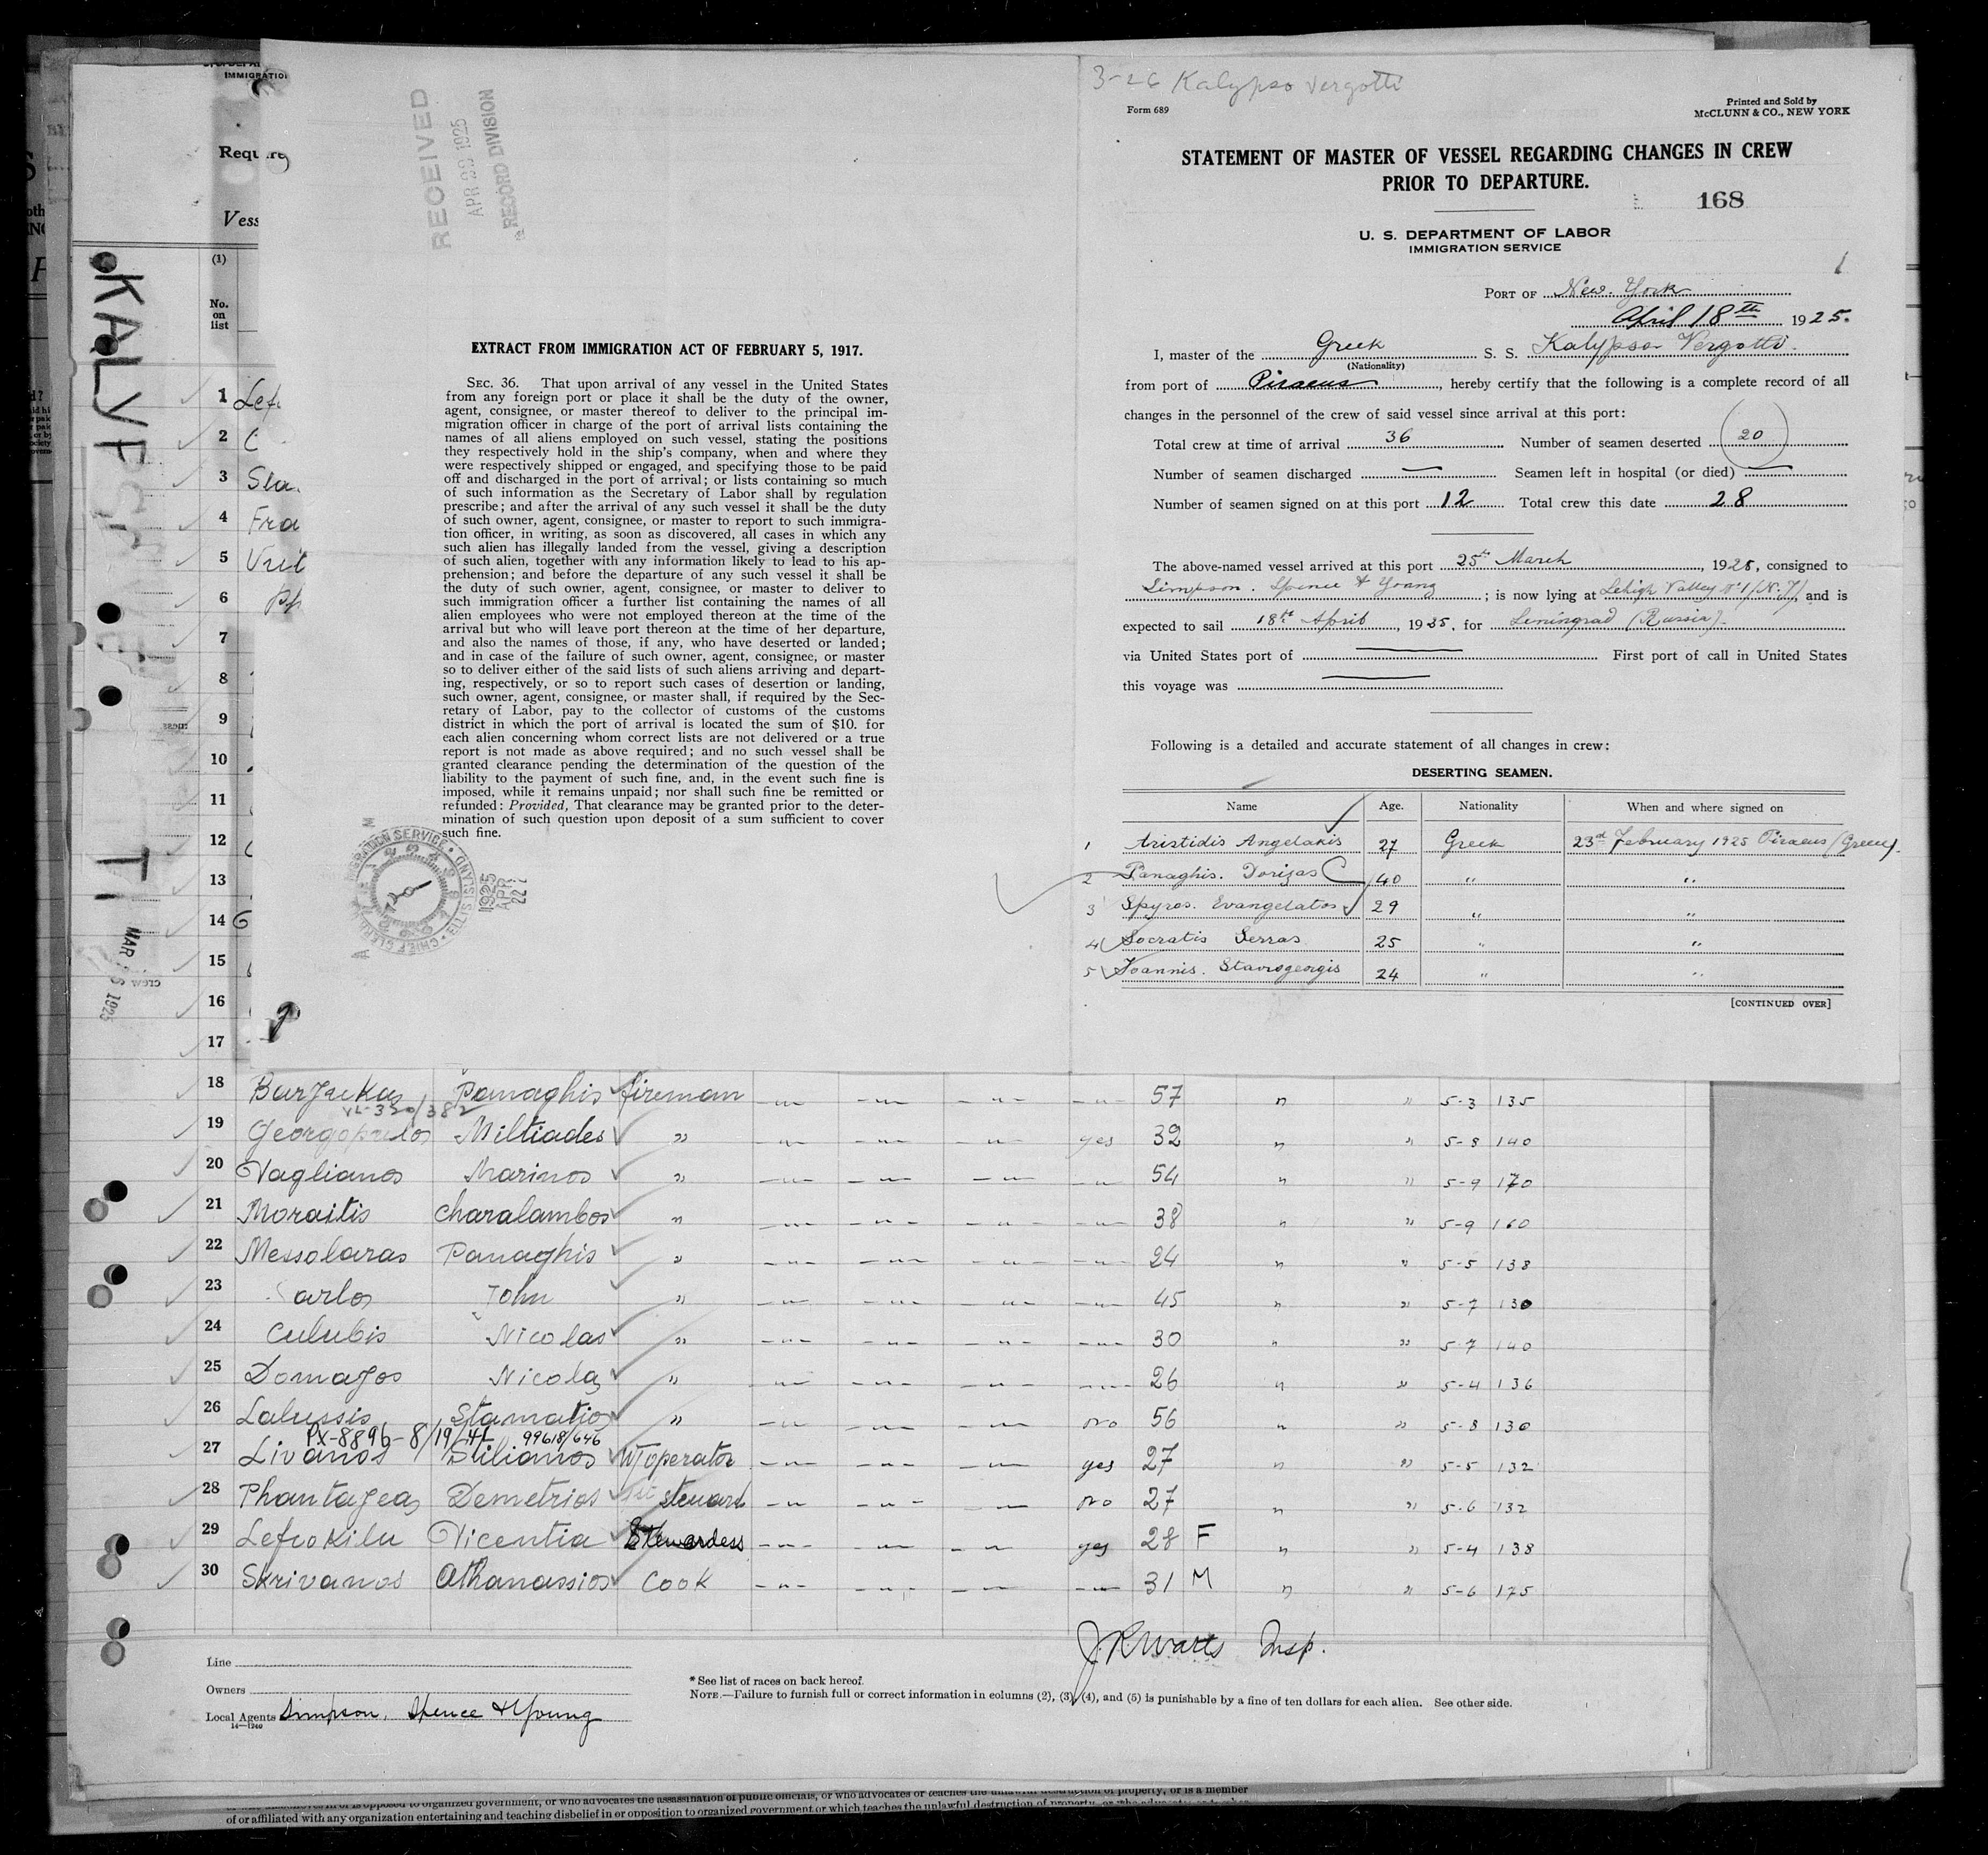 3-26 Kalypso Vergotti
Form 689
Printed and Sold by
McCLUNN & CO., NEW YORK
STATEMENT OF MASTER OF VESSEL REGARDING CHANGES IN CREW
PRIOR TO DEPARTURE.
168
U. S. DEPARTMENT OF LABOR
IMMIGRATION SERVICE
PORT OF New. York
April 18th 1925.
I, master of the Greek S. S. Kalypso Vergotti.
(Nationality)
from port of Piraeus, hereby certify that the following is a complete record of all
changes in the personnel of the crew of said vessel since arrival at this port:
Total crew at time of arrival 36 Number of seamen deserted 20
Number of seamen discharged — Seamen left in hospital (or died) —
Number of seamen signed on at this port 12 Total crew this date 28
The above-named vessel arrived at this port 25th March, 1925, consigned to
Simpson. Spence & Young; is now lying at Lehigh Valley N°1 (N.J), and is
expected to sail 18th April, 1925, for Leningrad (Russia).
via United States port of — First port of call in United States
this voyage was —
Following is a detailed and accurate statement of all changes in crew:
DESERTING SEAMEN.
Name Age. Nationality When and where signed on
1 Aristidis Angelakis 27 Greek 23rd February 1925 Piraeus (Greece).
2 Panaghis. Dorizas 40 " "
3 Spyros. Evangelatos 29 " "
4 Socratis Serras 25 " "
5 Joannis. Stavrogeorgis 24 " "
[CONTINUED OVER]
RECEIVED
APR 1925
RECORD DIVISION
EXTRACT FROM IMMIGRATION ACT OF FEBRUARY 5, 1917.
SEC. 36. That upon arrival of any vessel in the United States
from any foreign port or place it shall be the duty of the owner,
agent, consignee, or master thereof to deliver to the principal im-
migration officer in charge of the port of arrival lists containing the
names of all aliens employed on such vessel, stating the positions
they respectively hold in the ship's company, when and where they
were respectively shipped or engaged, and specifying those to be paid
off and discharged in the port of arrival; or lists containing so much
of such information as the Secretary of Labor shall by regulation
prescribe; and after the arrival of any such vessel it shall be the duty
of such owner, agent, consignee, or master to report to such immigra-
tion officer, in writing, as soon as discovered, all cases in which any
such alien has illegally landed from the vessel, giving a description
of such alien, together with any information likely to lead to his ap-
prehension; and before the departure of any such vessel it shall be
the duty of such owner, agent, consignee, or master to deliver to
such immigration officer a further list containing the names of all
alien employees who were not employed thereon at the time of the
arrival but who will leave port thereon at the time of her departure,
and also the names of those, if any, who have deserted or landed;
and in case of the failure of such owner, agent, consignee, or master
so to deliver either of the said lists of such aliens arriving and depart-
ing, respectively, or so to report such cases of desertion or landing,
such owner, agent, consignee, or master shall, if required by the Sec-
retary of Labor, pay to the collector of customs of the customs
district in which the port of arrival is located the sum of $10. for
each alien concerning whom correct lists are not delivered or a true
report is not made as above required; and no such vessel shall be
granted clearance pending the determination of the question of the
liability to the payment of such fine, and, in the event such fine is
imposed, while it remains unpaid; nor shall such fine be remitted or
refunded: Provided, That clearance may be granted prior to the deter-
mination of such question upon deposit of a sum sufficient to cover
such fine.
1925
APR
22
IMMIGRATIO
Vess
(1)
No.
on
list
1
2
3
4 Fra
5
6
7
8
9
10
11
12
13
14
15
16
17
MAR 1925
18 Panaghis fireman 57 " " 5-3 135
19 Georgopoulos Miltiades " yes 32 " " 5-8 140
20 Vaglianos Marinos " 54 " " 5-9 170
21 Moraitis Charalambos " 38 " " 5-9 160
22 Messolaras Panaghis " 24 " " 5-5 138
23 John " 45 " " 5-7 130
24 Culubis Nicolas " 30 " " 5-7 140
25 Domazos Nicolas " 26 " " 5-4 136
26 Lalussis Stamatios " no 56 " " 5-8 130
PX-8896-8/19/41 99618/646
27 Livanos Stilianos W/operator yes 27 " " 5-5 132
28 Phantazeas Demetrios 1st steuard no 27 " " 5-6 132
29 Lefkokilu Vicentia Stewardess yes 28 F " " 5-4 138
30 Skrivanos Athanassios Cook 31 M " " 5-6 175
Insp.
Line
Owners
Local Agents Simpson, Spence & Young
14—1240
* See list of races on back hereof.
NOTE.—Failure to furnish full or correct information in columns (2), (3), (4), and (5) is punishable by a fine of ten dollars for each alien. See other side.
of or affiliated with any organization entertaining and teaching disbelief in or opposition to organized government or which teaches the unlawful destruction of property,